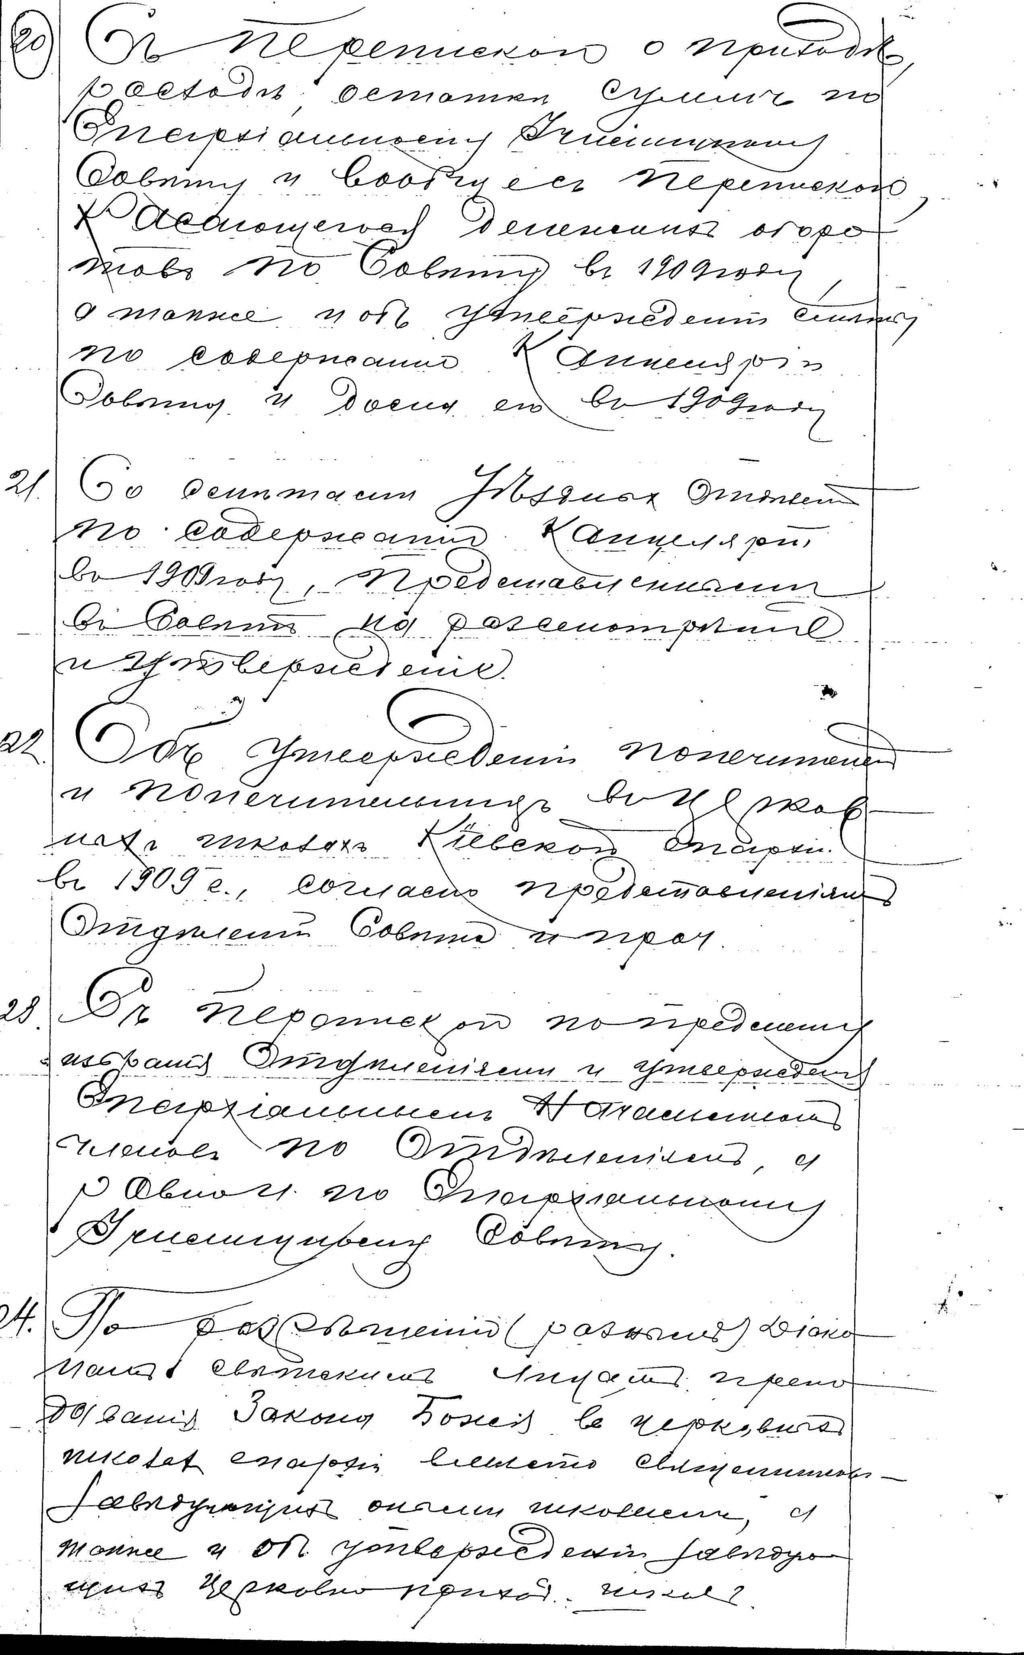 20) Съ перепиской о приходѣ,
расходѣ, остатки суммъ по
Епархіальному Училищному
Совѣту и вообще съ перепиской
касающегося денежныхъ оборо
товъ по Совѣту въ 1909 году,
а также и объ утвержденіи смѣты
по содержанію Канцеляріи
Совѣта и дома его въ 1909 году
21. Со смѣтами Уѣздныхъ Отдѣленій
по содержанію Канцеляріи
въ 1909 году, представленными
въ Совѣтъ на разсмотрѣніе
и утвержденіе.
22. Объ утвержденіи попечителей
и попечительницъ въ церков
ныхъ школахъ Кіевской епархіи
въ 1909 г., согласно представленіямъ
Отдѣленій Совѣта и проч.
23. Съ перепиской по предмету
избранія Отдѣленіями и утвержденія
Епархіальнымъ Начальствомъ
членовъ по Отдѣленіямъ, а
равно и по Епархіальному
Училищному Совѣту.
24. По разрѣшенію (разнымъ) діако
намъ и свѣтскимъ лицамъ препо
даванія Закона Божія въ церковныхъ
школахъ епархіи вмѣсто священниковъ
завѣдующихъ оными школами, а
также и объ утвержденіи завѣдую
щихъ церковно приход. школъ.